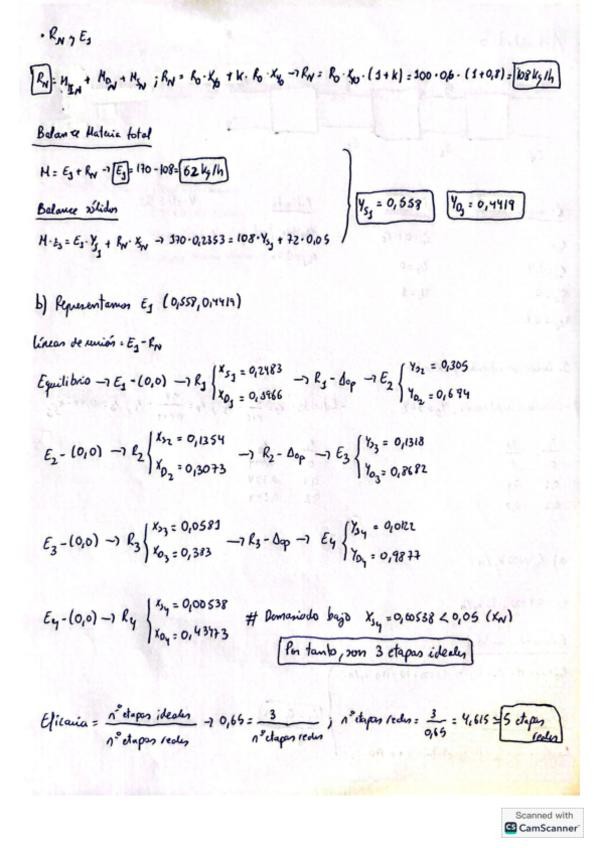 • R_N y E_1
R_N = M_IN + M_DN + M_SN ; R_N = R_0 · X_I0 + K · R_0 · X_I0 → R_N = R_0 · X_I0 · (1+K) = 100 · 0,6 · (1+0,8) = 108 kg/h
Balance Materia total
M = E_1 + R_N → E_1 = 170 - 108 = 62 kg/h
Balance sólidos
Y_S1 = 0,558 Y_D1 = 0,4419
b) Representamos E_1 (0,558, 0,4419)
Líneas de unión: E_1 - R_N
Equilibrio → E_1 - (0,0) → R_1 { X_S1 = 0,2483 → R_1 - Δop → E_2 { Y_S2 = 0,305
X_D1 = 0,1966 Y_D2 = 0,694
E_2 - (0,0) → R_2 { X_S2 = 0,1354 → R_2 - Δop → E_3 { Y_S3 = 0,1318
X_D2 = 0,3073 Y_D3 = 0,8682
E_3 - (0,0) → R_3 { X_S3 = 0,0581 → R_3 - Δop → E_4 { Y_S4 = 0,0122
X_D3 = 0,383 Y_D4 = 0,9877
E_4 - (0,0) → R_4 { X_S4 = 0,00538 # Demasiado bajo X_S4 = 0,00538 < 0,05 (X_N)
X_D4 = 0,43773
Por tanto, son 3 etapas ideales
Eficacia = nº etapas ideales / nº etapas reales → 0,65 = 3 / nº etapas reales ; nº etapas reales = 3 / 0,65 = 4,615 ≃ 5 etapas reales
Scanned with
CS CamScanner